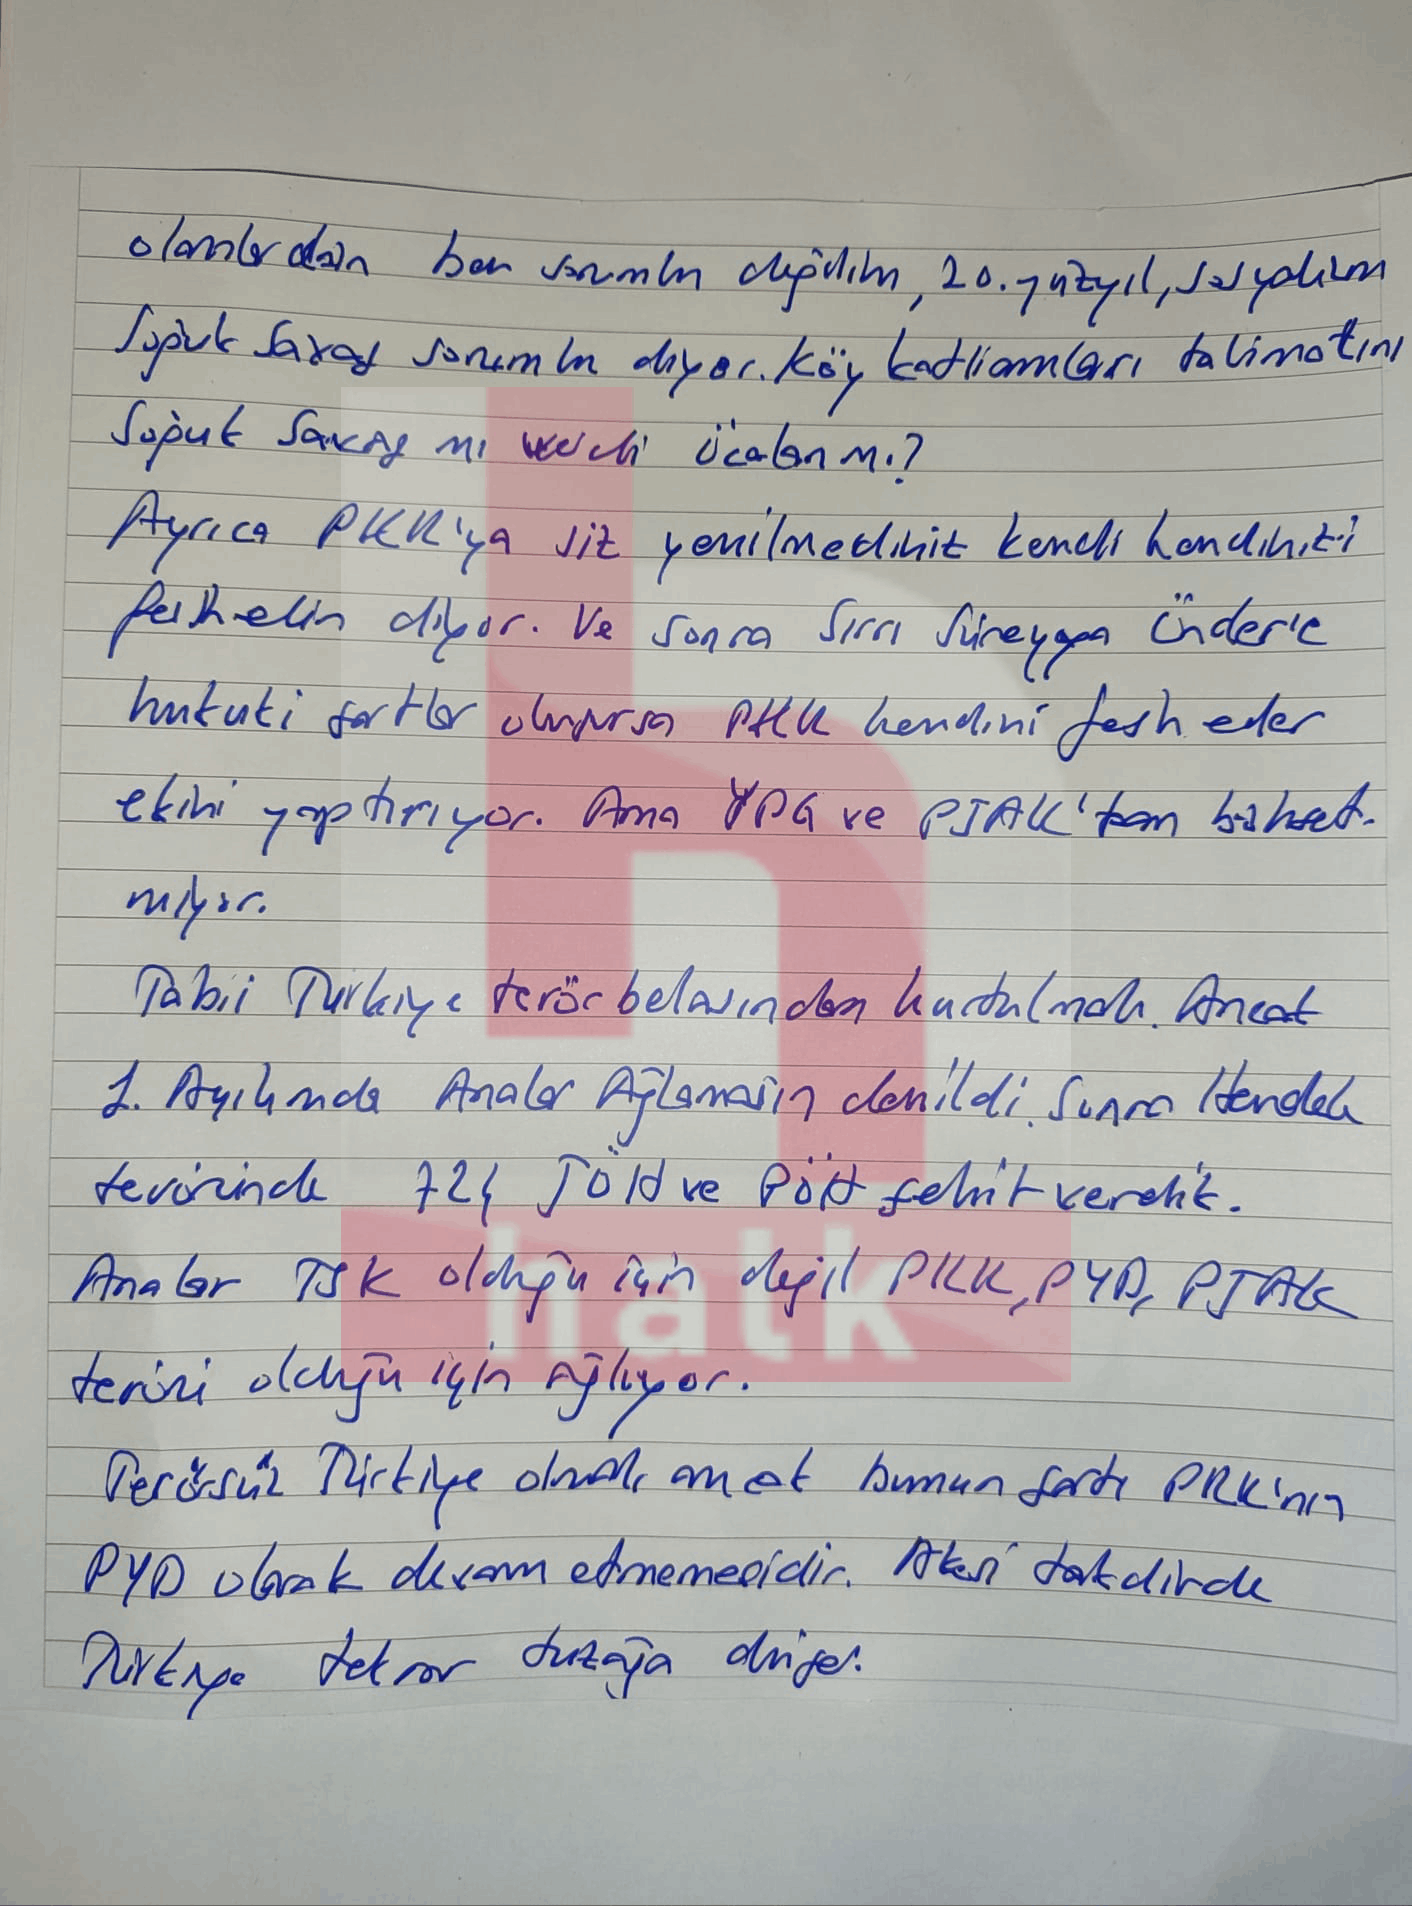 olanlardan ben sorumlu değilim, 20. yüzyıl, sosyalizm
Soğuk Savaş sorumlu diyor. Köy katliamları talimatını
Soğuk Savaş mı verdi Öcalan mı?
Ayrıca PKK'ya siz yenilmediniz kendi kendinizi
feshedin diyor. Ve sonra Sırrı Süreyya Önder'e
hukuki şartlar oluşursa PKK kendini fesh eder
ekini yaptırıyor. Ama YPG ve PJAK'tan bahset-
miyor.
Tabii Türkiye terör belasından kurtulmalı. Ancak
1. Açılımda Analar Ağlamasın denildi. Sonra Hendek
teröründe 724 JÖH ve PÖH şehit verdik.
Analar TSK olduğu için değil PKK, PYD, PJAK
terörü olduğu için ağlıyor.
Terörsüz Türkiye olmalı ancak bunun şartı PKK'nın
PYD olarak devam etmemesidir. Aksi takdirde
Türkiye tekrar tuzağa düşer.
halk